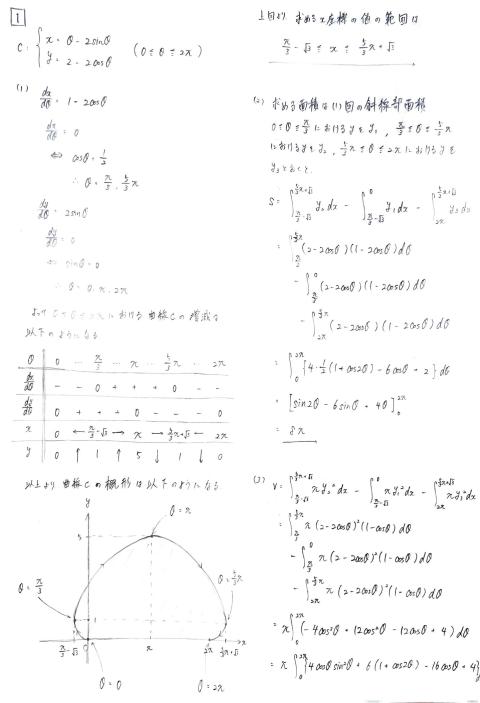 1
C: { x = θ - 2sinθ
y = 2 - 2cosθ (0 ≤ θ ≤ 2π)
(1)
dx/dθ = 1 - 2cosθ
dx/dθ = 0
⇔ cosθ = 1/2
∴ θ = π/3, 5/3π
dy/dθ = 2sinθ
dy/dθ = 0
⇔ sinθ = 0
∴ θ = 0, π, 2π
より 0 ≤ θ ≤ 2π における 曲線Cの 増減は
以下のようになる
θ 0 … π/3 … π … 5/3π … 2π
dx/dθ - - 0 + + + 0 - -
dy/dθ 0 + + + 0 - - - 0
x 0 ← π/3-√3 → π → 5/3π+√3 ← 2π
y 0 ↑ 1 ↑ 5 ↓ 1 ↓ 0
以上より 曲線Cの 概形は以下のようになる
y
θ = π
5
θ = π/3
θ = 5/3π
1
π/3-√3 0 π 2π 5/3π+√3 x
θ = 0
θ = 2π
上図より 求める x座標の値の範囲は
π/3 - √3 ≤ x ≤ 5/3π + √3
(2) 求める面積は(1)図の斜線部面積
0 ≤ θ ≤ π/3 における y を y₁, π/3 ≤ θ ≤ 5/3π
における y を y₂, 5/3π ≤ θ ≤ 2π における y を
y₃ とおくと、
S = ∫_{π/3-√3}^{5/3π+√3} y₂ dx - ∫_{π/3-√3}^{0} y₁ dx - ∫_{2π}^{5/3π+√3} y₃ dx
= ∫_{π/3}^{5/3π} (2-2cosθ)(1-2cosθ) dθ
- ∫_{π/3}^{0} (2-2cosθ)(1-2cosθ) dθ
- ∫_{2π}^{5/3π} (2-2cosθ)(1-2cosθ) dθ
= ∫_{0}^{2π} {4·1/2(1+cos2θ) - 6cosθ + 2} dθ
= [sin2θ - 6sinθ + 4θ]_{0}^{2π}
= 8π
(3) V = ∫_{π/3-√3}^{5/3π+√3} πy₂² dx - ∫_{π/3-√3}^{0} πy₁² dx - ∫_{2π}^{5/3π+√3} πy₃² dx
= ∫_{π/3}^{5/3π} π(2-2cosθ)²(1-cosθ) dθ
- ∫_{π/3}^{0} π(2-2cosθ)²(1-cosθ) dθ
- ∫_{2π}^{5/3π} π(2-2cosθ)²(1-cosθ) dθ
= π∫_{0}^{2π} (-4cos³θ + 12cos²θ - 12cosθ + 4) dθ
= π∫_{0}^{2π} {4cosθsin²θ + 6(1+cos2θ) - 16cosθ + 4} d